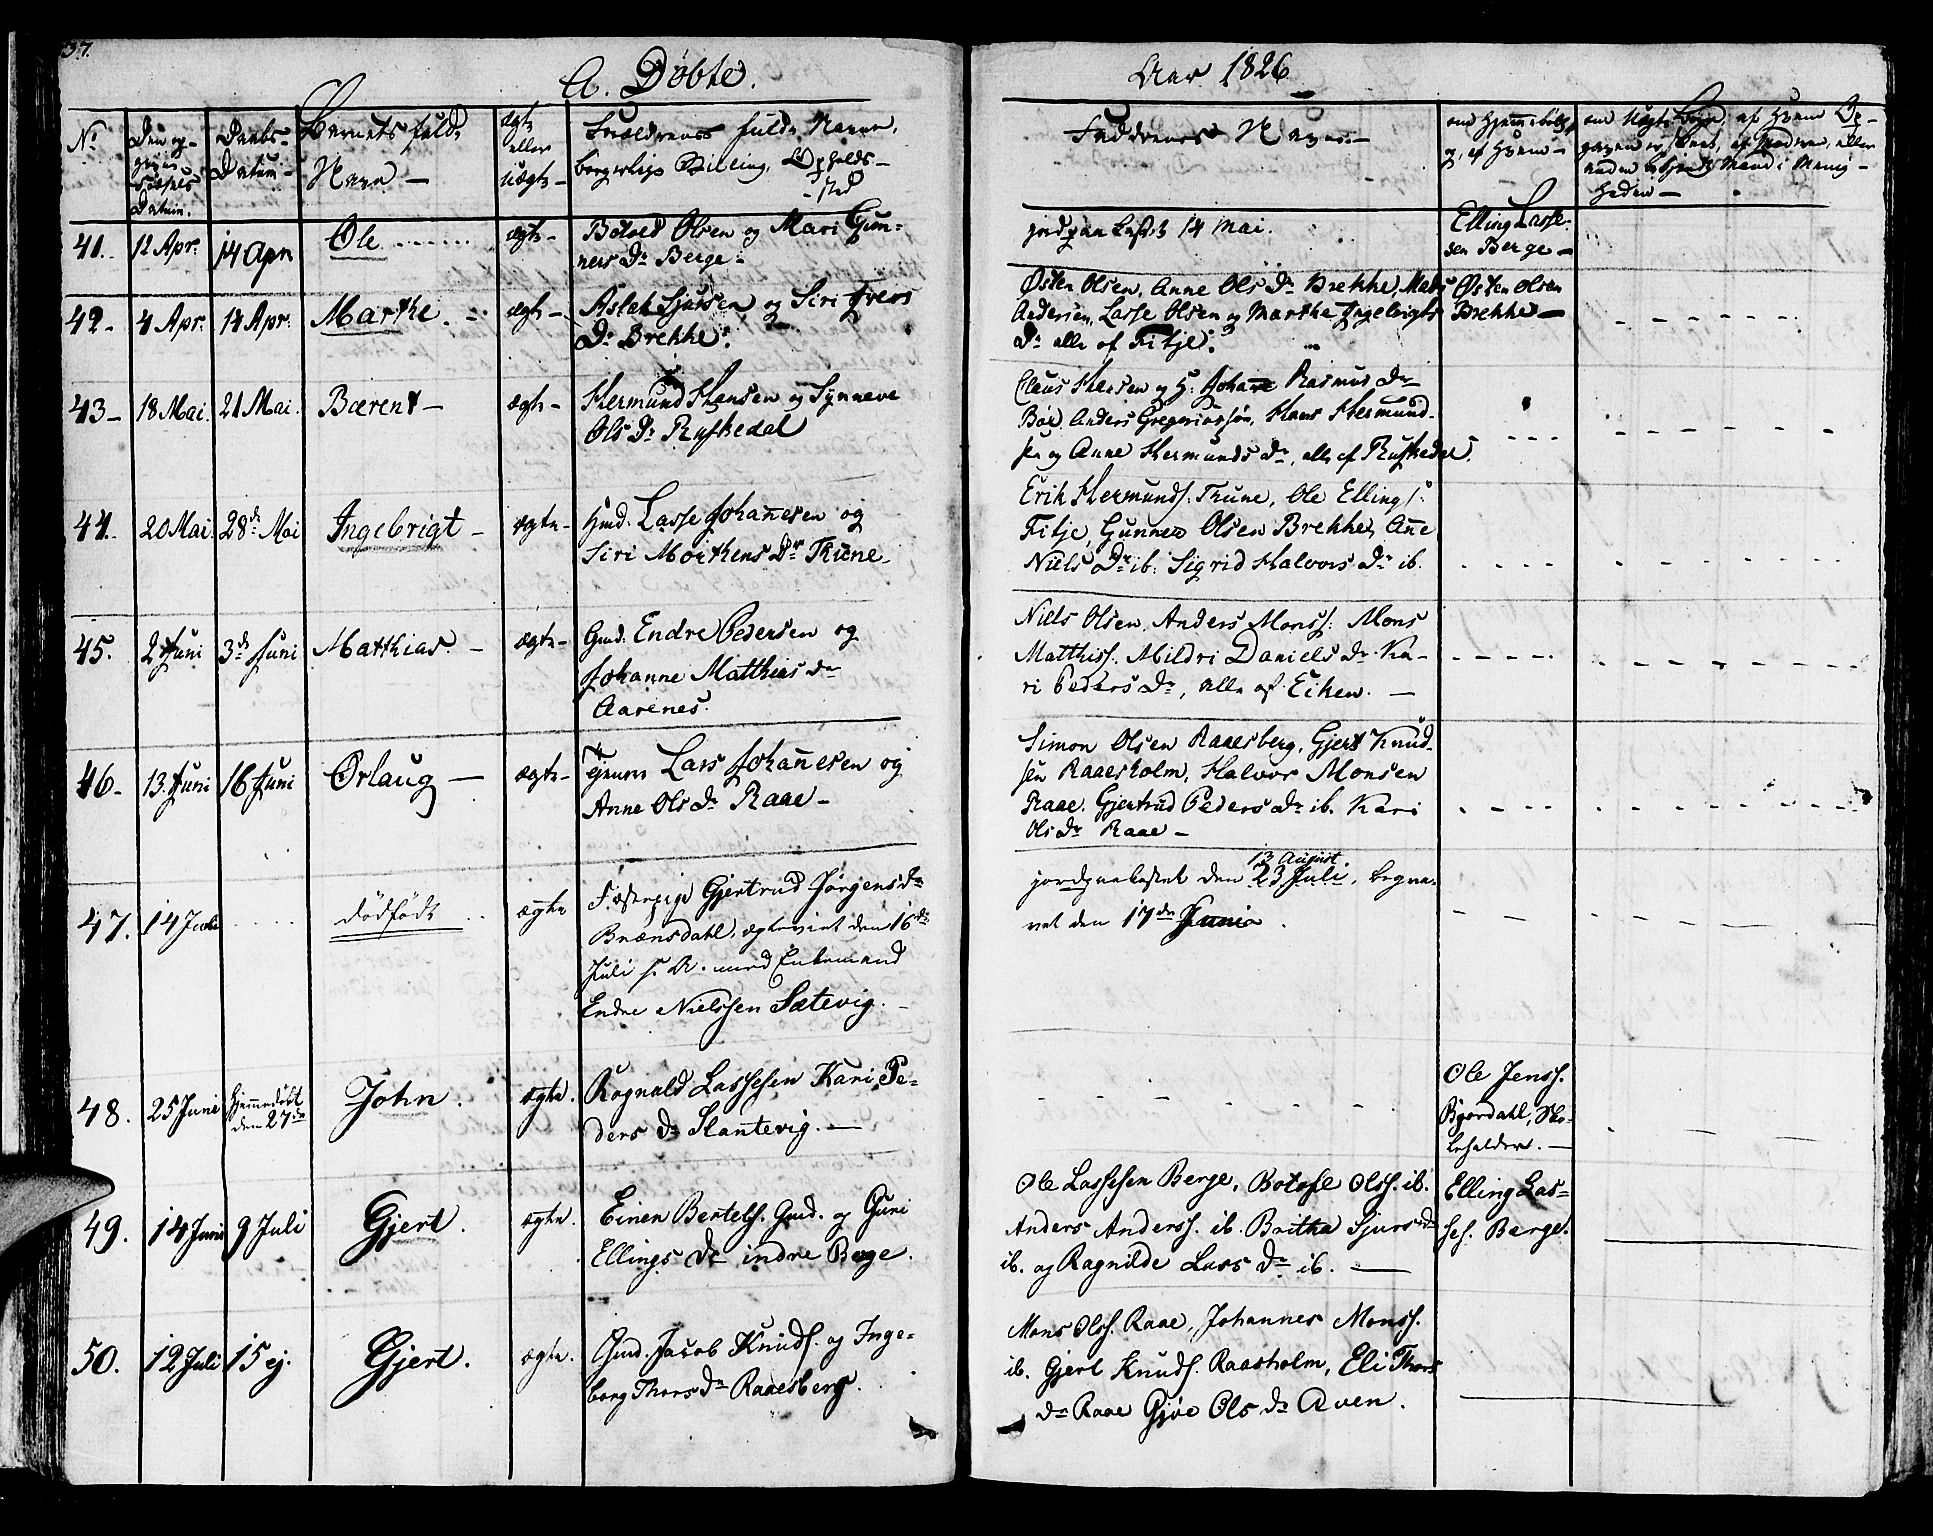 37.
A. Döbte.
Aar 1826
No
Barnets fulde
Navn —
Daabs-
Datum -
ægte
eller
uægte -
Forældrenes fulde Navne,
borgerlige Stilling, Opholds-
sted
Faddrenes Navne —
om Hjemmedøbt,
og, af Hvem —
41. 12 Apr. 14 Apr. Ole ...... ægte -
Botved Olsen og Mari Gun-
ners Dr Berge -
jordpaakastet 14 Mai.
Elling Lasse-
sen Berge —
42 - 4 Apr: 14 Apr: Marthe. ægte -
Aslak Sjursen og Siri Ivers
Dr Brekke.
Østen Olsen, Anne Ols Dr Brekke, Mads
Andersen, Lasse Olsen og Marthe Ingebrigts
Dr alle af Fitje.
Østen Olsen
Brekke —
43 - 18 Mai. 21 Mai. Bærent - ægte -
Hermund Hansen og Synneve
Ols Dr Rufsedal
Claus Hersen og H: Johane Rasmus Dr
Böe, Anders Gregoriussøn, Hans Hermund-
sen og Anne Hermunds Dr, alle af Rufsedal.
44. 20 Mai. 28de Mai Ingebrigt - ægte -
Hmd. Lasse Johannesen og
Siri Moithens Dr Thune -
Erik Hermunds. Thune, Ole Ellings.
Fitje, Gunner Olsen Brekke, Ane
Niels Dr ib: Sigrid Halvors Dr ib.
45. 2 Juni 3de Juni Matthias - ægte -
Gmd. Endre Pedersen og
Johanne Matthias Dr
Aarenes.
Niels Olsen, Anders Monss: Mons
Matthiss. Mildri Daniels Dr Ka-
ri Peders Dr, alle af Eiken. —
46 - 13. Juni 16 Juni Orlaug - ægte -
Lars Johannesen og
Anne Ols Dr Raae -
Simon Olsen Raaesberg, Gjert Knud-
sen Raaesholm, Halvor Monsen
Raae. Gjertrud Peders Dr ib. Kari
Ols Dr Raae -
47. 14 Juni dødfødt ægte
Fæstepige Gjertrud Jørgens Dr
Brænsdahl, ægteviet den 16de
Juli s. A. med Enkemand
Endre Nielssen Sætevig. -
13 August.
jordpaakastet den 23 Juli, begra-
vet den 17de Junio.
48. 25 Juni Hjemmedøbt
den 27de John. ægte.
Rognald Lassesen Kari Pe-
ders Dr Slantevig. —
Ole Jenss.
Bjordahl, Sko-
leholder. —
49. 14 Juni 9 Juli Gjert. ægte.
Einer Bertels. Gmd. og Guri
Ellings Dr indre Berge.
Ole Lassesen Berge, Botofl Olss. ib.
Anders Anderss. ib. Britha Sjurs Dr
ib. og Ragnilde Lars Dr ib. —
Elling Las-
ses. Berge.
50. 12 Juli 15 ej. Gjert. ægte.
Gmd. Jacob Knuds. og Inge-
borg Thors Dr Raaesberg.
Mons Olss. Raae, Johannes Monss.
ib. Gjert Knuds. Raaesholm, Eli Thors
Dr Raae Gjøe Ols Dr Aven.